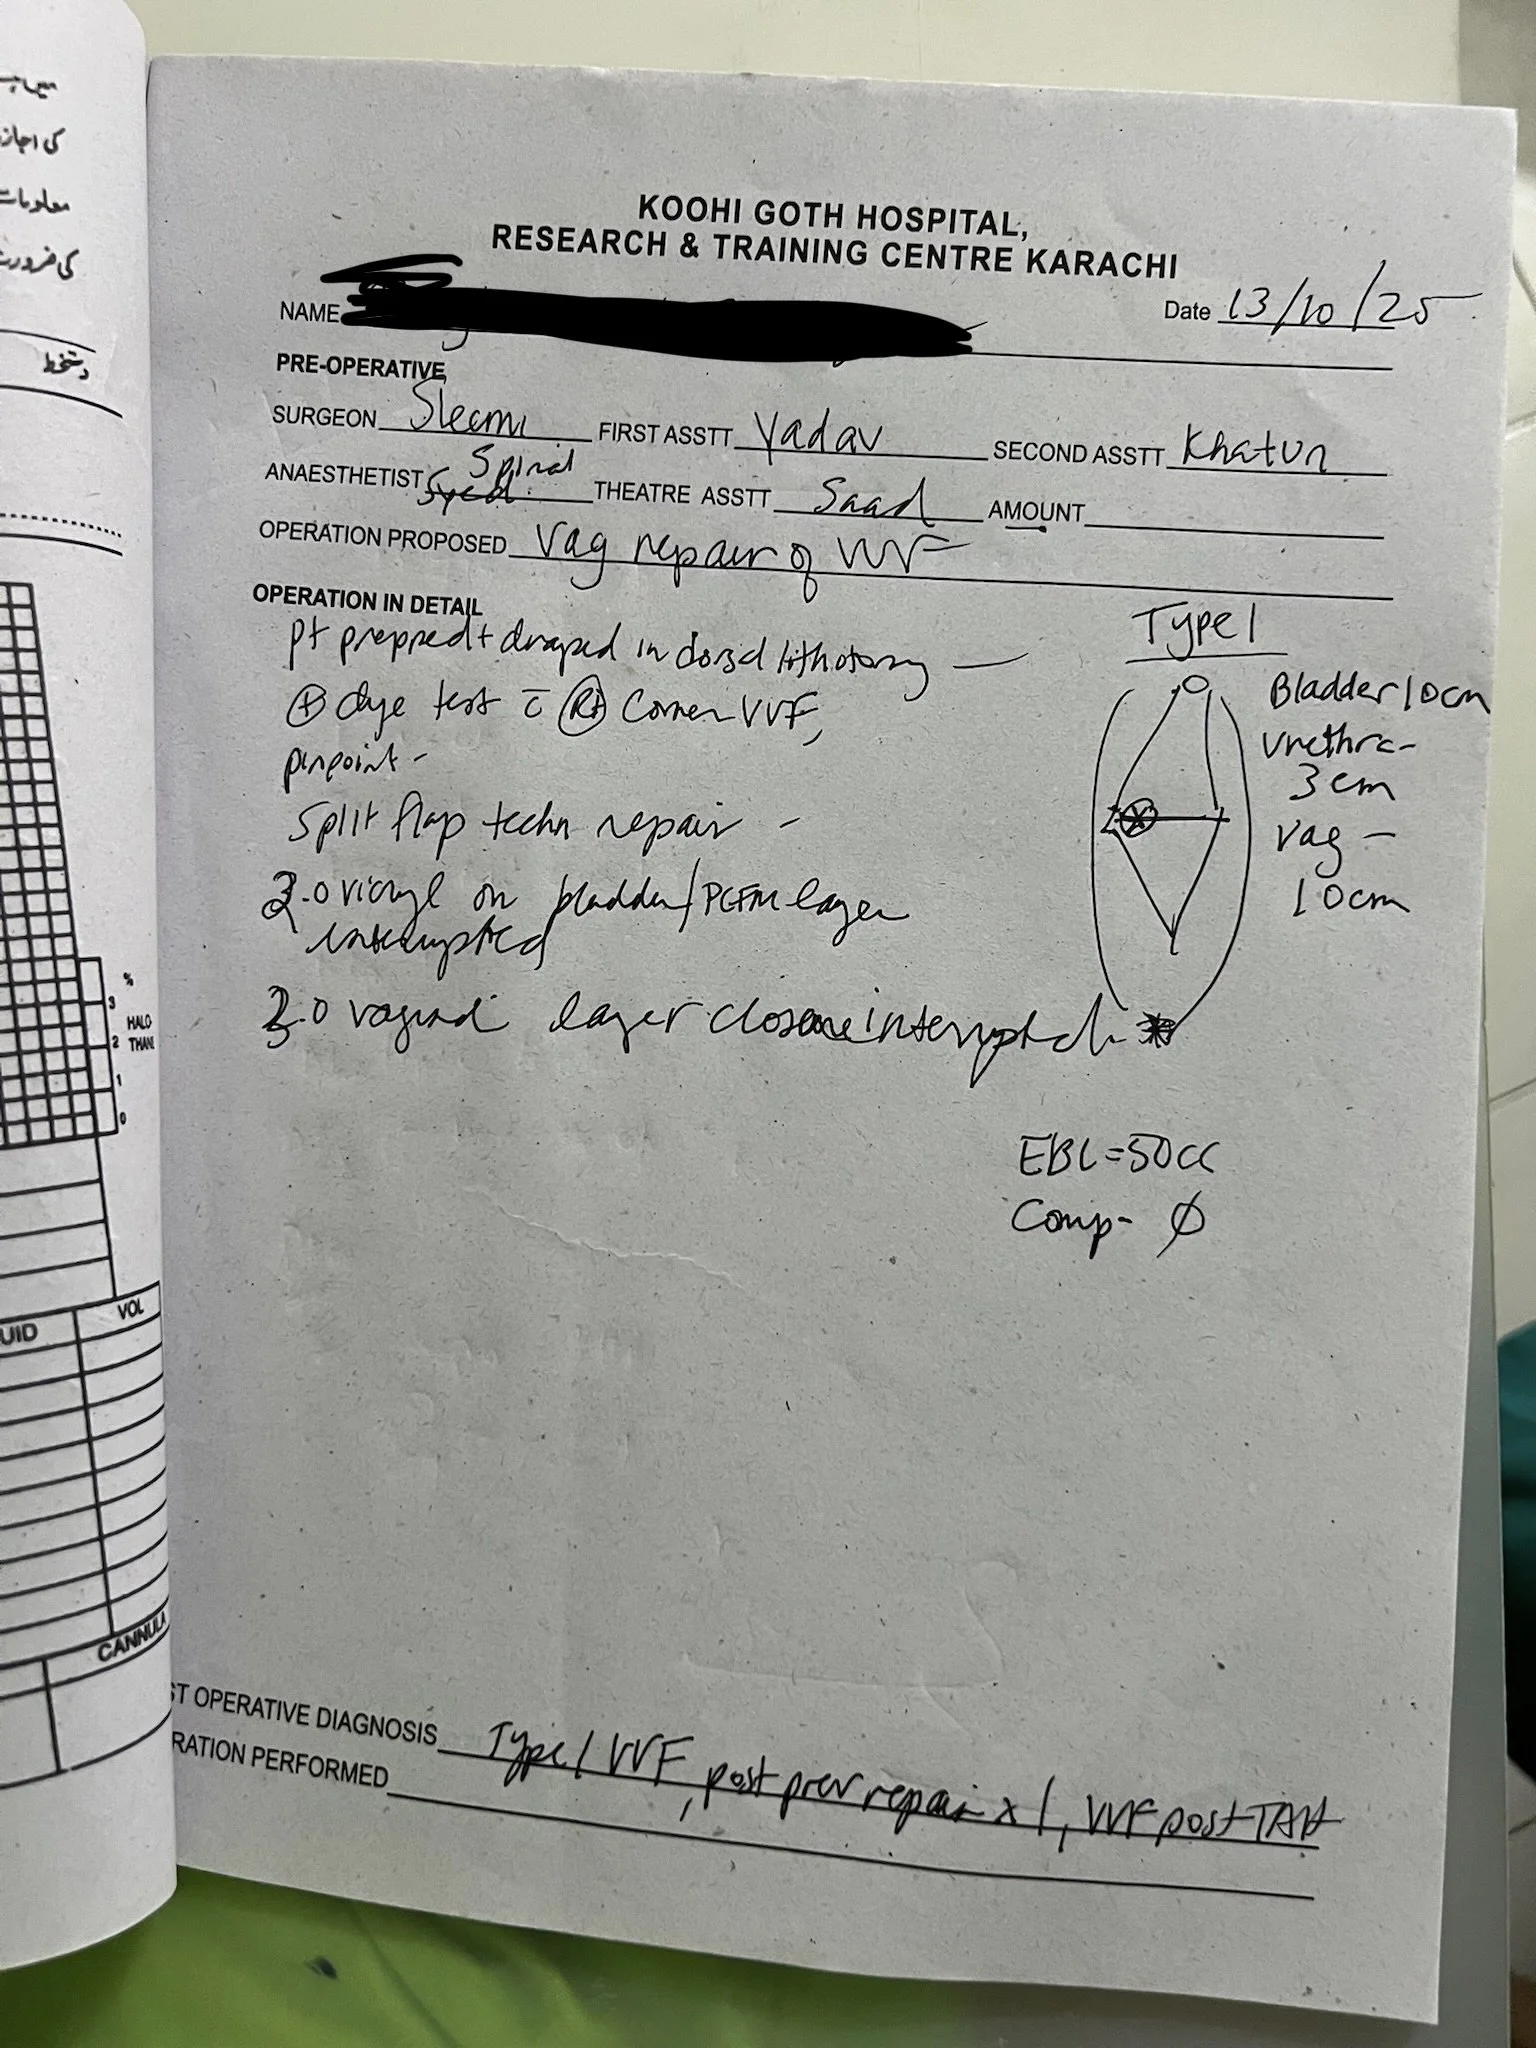 میں
کی اجاز
معلومات
کی ضرورت
دستخط
%
3
HALO
THANE
2
1
0
UID VOL
CANNULA
KOOHI GOTH HOSPITAL,
RESEARCH & TRAINING CENTRE KARACHI
NAME Date 13/10/25
PRE-OPERATIVE
SURGEON Sleemi FIRST ASSTT Yadav SECOND ASSTT Khatun
Spinal
ANAESTHETIST Syed THEATRE ASSTT Saad AMOUNT
OPERATION PROPOSED Vag repair of VVF
OPERATION IN DETAIL
pt prepped + draped in dorsal lithotomy —
⊕ dye test c̄ Rt Corner VVF,
pinpoint -
Split flap techn repair -
2.0 vicryl on bladder/PCFM layer
interrupted
2.0 vaginal layer closure interrupted
Type 1
Bladder 10cm
Urethra-
3 cm
Vag -
10cm
EBL=50cc
Comp- Ø
ST OPERATIVE DIAGNOSIS Type 1 VVF, post prev repair x 1, VVF post TAH
RATION PERFORMED